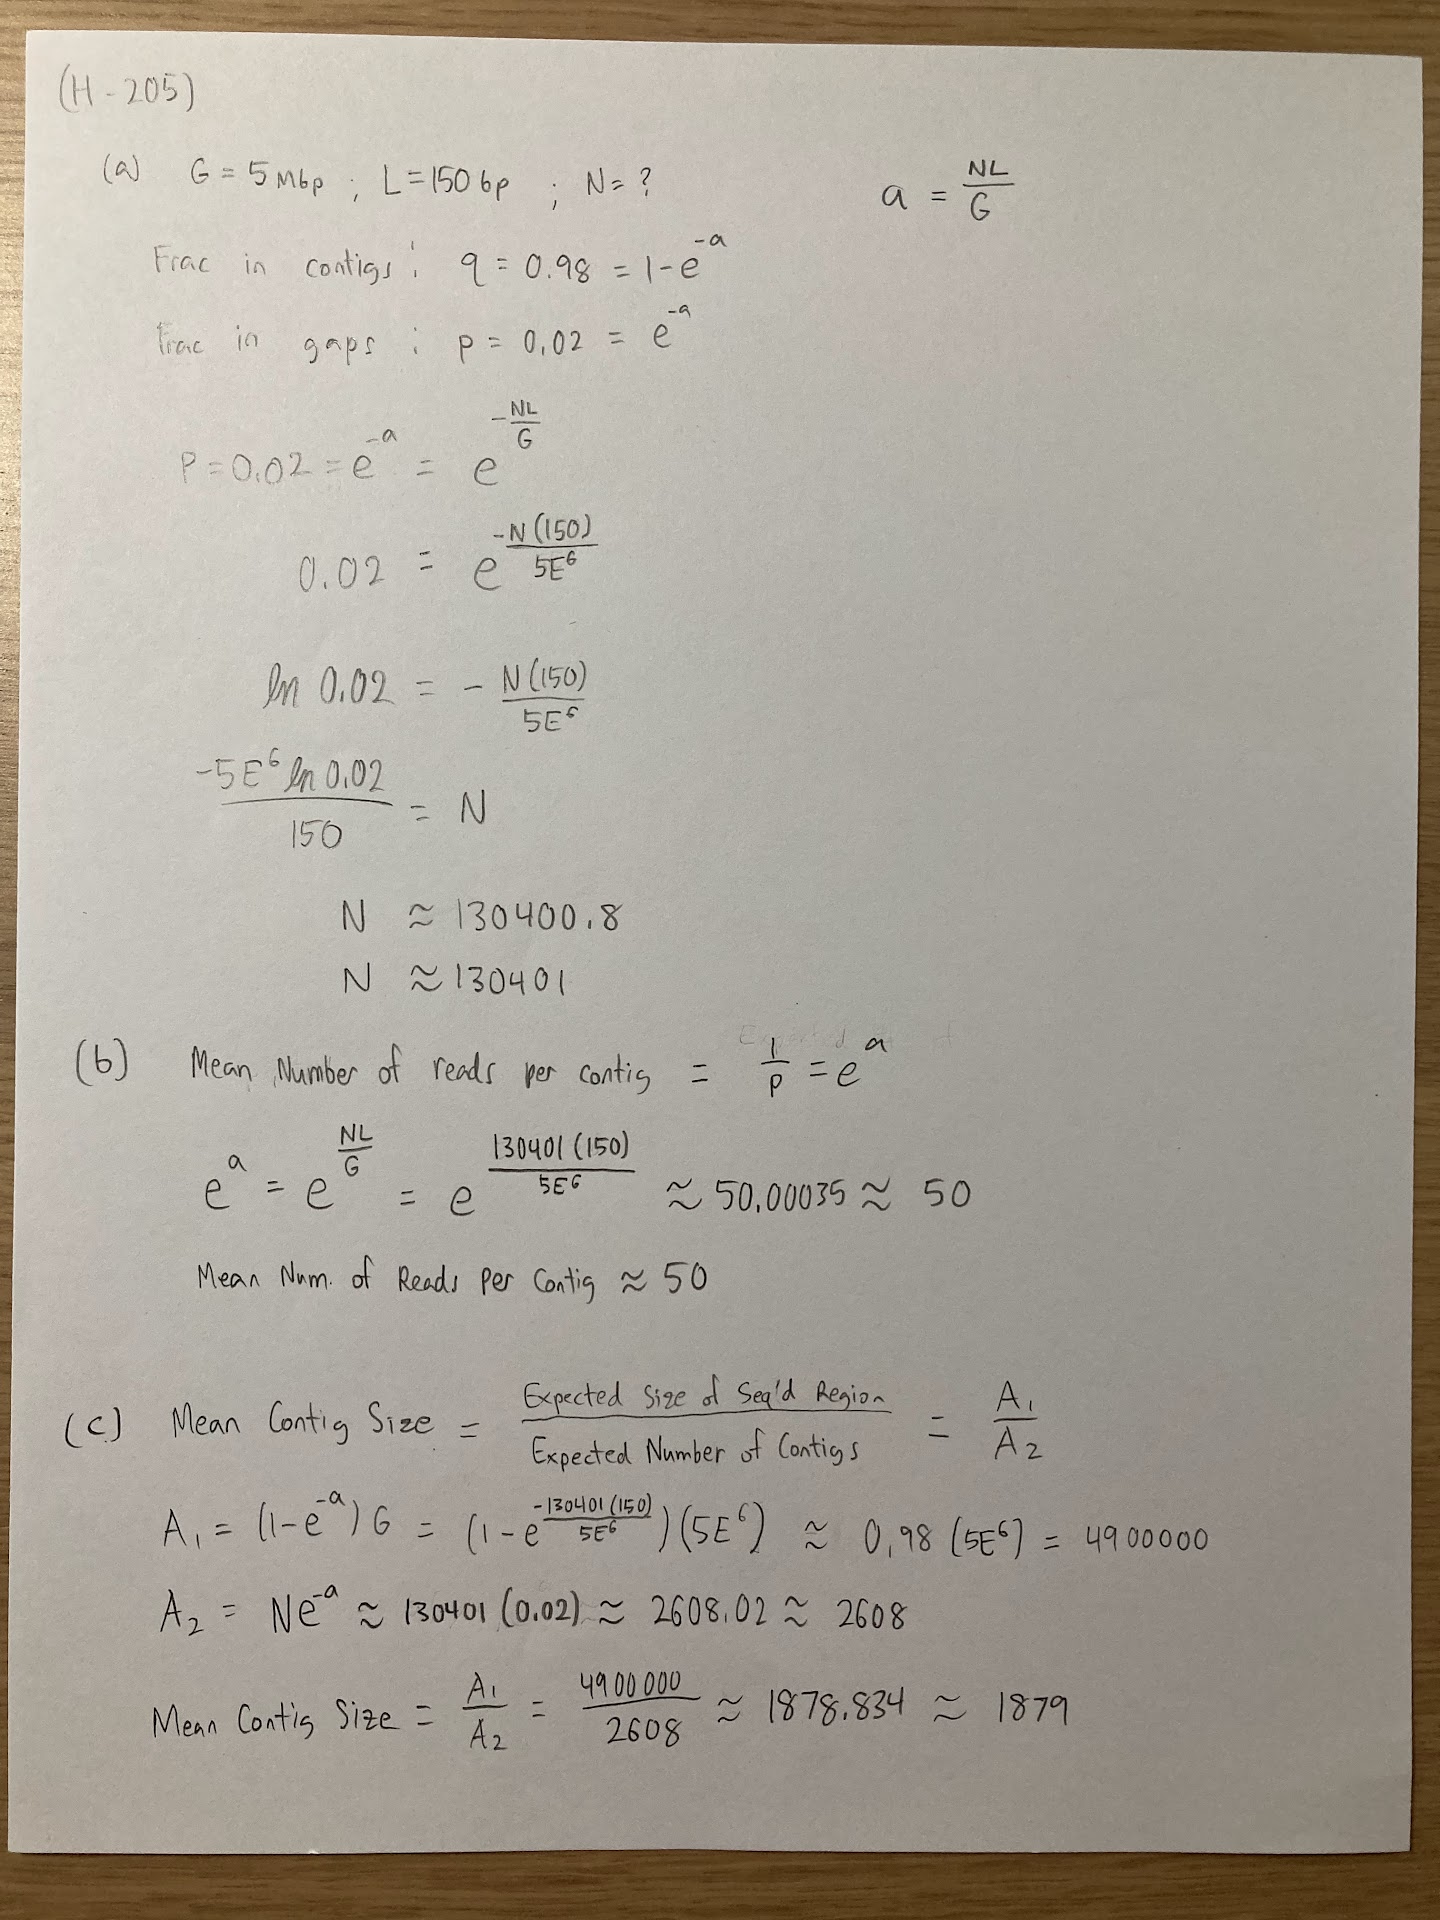 (H-205)
(a) G = 5Mbp ; L = 150bp ; N = ? a = NL/G
Frac in contigs : q = 0.98 = 1-e^-a
Frac in gaps : p = 0.02 = e^-a
P = 0.02 = e^-a = e^-NL/G
0.02 = e^-N(150)/5E^6
ln 0.02 = - N(150)/5E^6
-5E^6 ln 0.02/150 = N
N ≈ 130400.8
N ≈ 130401
(b) Mean Number of reads per contig = 1/p = e^a
e^a = e^NL/G = e^130401(150)/5E6 ≈ 50.00035 ≈ 50
Mean Num. of Reads Per Contig ≈ 50
(c) Mean Contig Size = Expected Size of Seq'd Region/Expected Number of Contigs = A₁/A₂
A₁ = (1-e^-a)G = (1-e^-130401(150)/5E6)(5E^6) ≈ 0.98 (5E^6) = 4900000
A₂ = Ne^-a ≈ 130401 (0.02) ≈ 2608.02 ≈ 2608
Mean Contig Size = A₁/A₂ = 4900000/2608 ≈ 1878.834 ≈ 1879